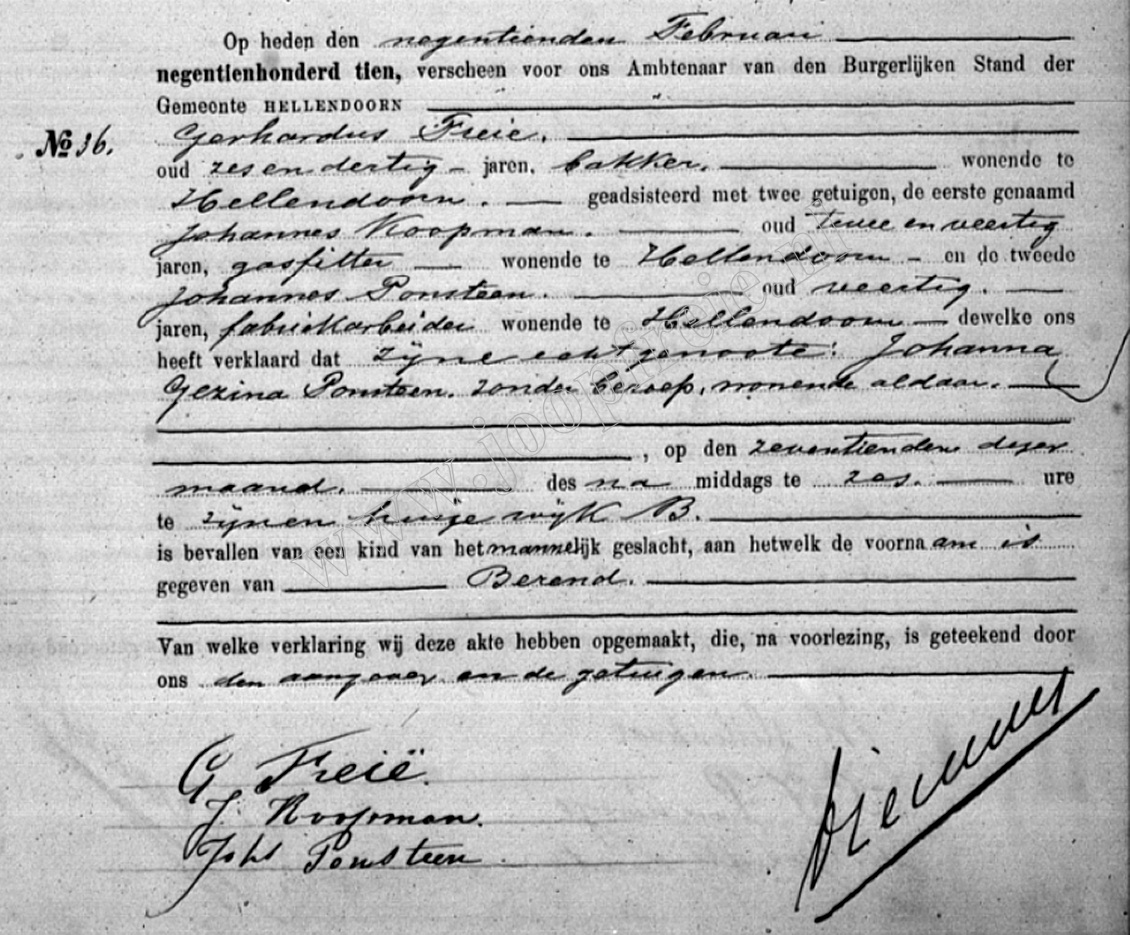 Op heden den negentienden Februari
negentienhonderd tien, verscheen voor ons Ambtenaar van den Burgerlijken Stand der
Gemeente HELLENDOORN
No 36.
Gerhardus Freie.
oud zes en dertig jaren, bakker. wonende te
Hellendoorn. geadsisteerd met twee getuigen, de eerste genaamd
Johannes Koopman. oud twee en veertig
jaren, gasfitter wonende te Hellendoorn en de tweede
Johannes Ponsteen. oud veertig.
jaren, fabriekarbeider wonende te Hellendoorn dewelke ons
heeft verklaard dat zijne echtgenoote: Johanna
Gezina Ponsteen. zonder beroep, wonende aldaar.
, op den zeventienden dezer
maand. des na middags te zes. ure
te zijnen huize wijk B.
is bevallen van een kind van het mannelijk geslacht, aan hetwelk de voornaam is
gegeven van Berend.
Van welke verklaring wij deze akte hebben opgemaakt, die, na voorlezing, is geteekend door
ons den aangever en de getuigen.
G Freië.
J. Koopman.
Johs Ponsteen
www.joopfreie.nl